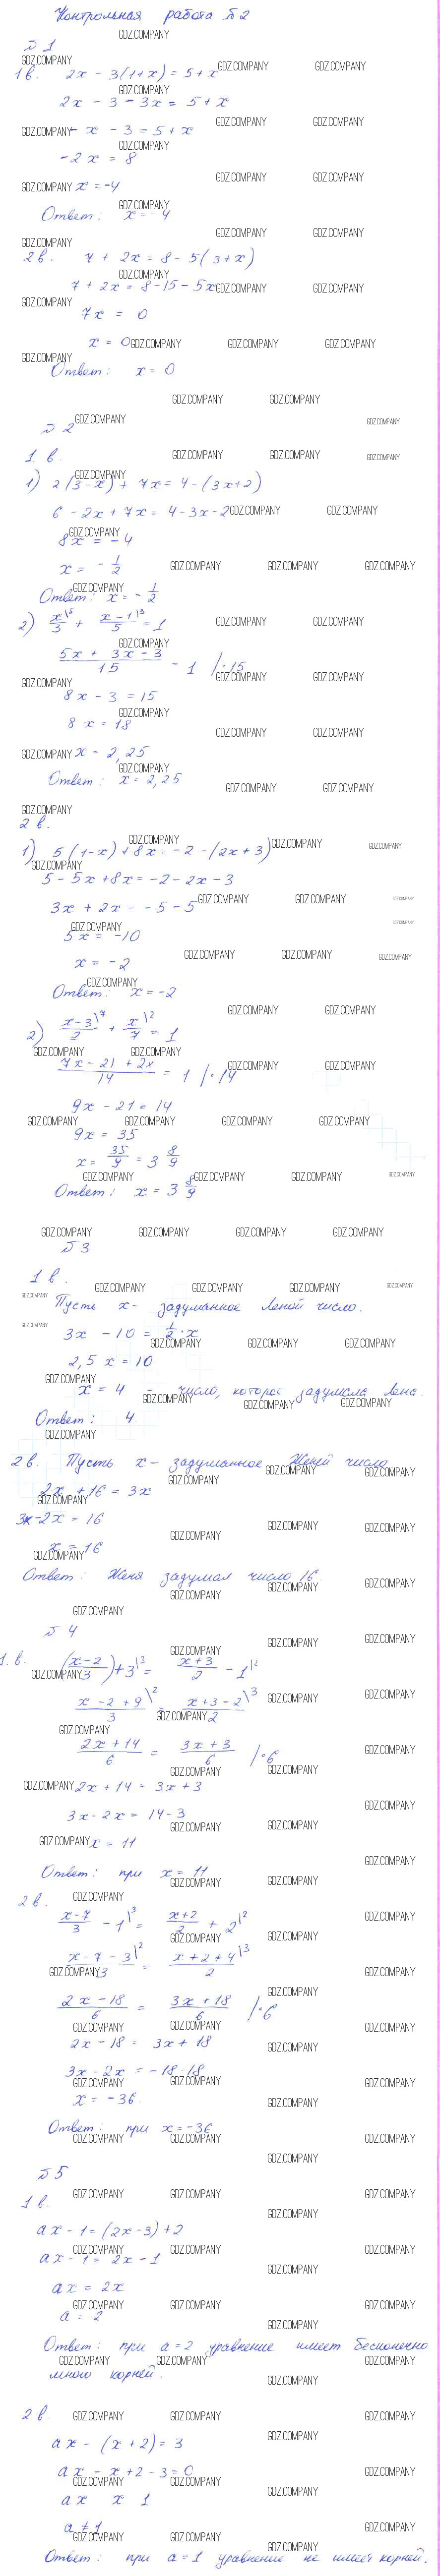 Контрольная работа №2
№ 1
1 в. 2x - 3(1+x) = 5+x
2x - 3 - 3x = 5 + x
- x - 3 = 5 + x
-2x = 8
x = -4
Ответ: x = -4
2 в. 7 + 2x = 8 - 5(3+x)
7 + 2x = 8 - 15 - 5x
7x = 0
x = 0
Ответ: x = 0
№ 2
1 в.
1) 2(3-x) + 7x = 4 - (3x+2)
6 - 2x + 7x = 4 - 3x - 2
8x = -4
x = - 1/2
Ответ: x = - 1/2
2) x/3 \5 + (x-1)/5 \3 = 1
(5x + 3x - 3)/15 = 1 |·15
8x - 3 = 15
8x = 18
x = 2,25
Ответ: x = 2,25
2 в.
1) 5(1-x) + 8x = -2 - (2x+3)
5 - 5x + 8x = -2 - 2x - 3
3x + 2x = -5 - 5
5x = -10
x = -2
Ответ: x = -2
2) (x-3)/2 \7 + x/7 \2 = 1
(7x - 21 + 2x)/14 = 1 |·14
9x - 21 = 14
9x = 35
x = 35/9 = 3 8/9
Ответ: x = 3 8/9
№ 3
1 в.
Пусть x - задуманное Леной число.
3x - 10 = 1/2 · x
2,5x = 10
x = 4 - число, которое задумала Лена.
Ответ: 4
2 в. Пусть x - задуманное Женей число
2x + 16 = 3x
3x - 2x = 16
x = 16
Ответ: Женя задумал число 16.
№ 4
1. в. ((x-2)/3) + 3 \3 = (x+3)/2 - 1 \2
(x - 2 + 9)/3 \2 = (x + 3 - 2)/2 \3
(2x + 14)/6 = (3x + 3)/6 |·6
2x + 14 = 3x + 3
3x - 2x = 14 - 3
x = 11
Ответ: при x = 11
2 в.
(x-7)/3 - 1 \3 = (x+2)/2 + 2 \2
(x - 7 - 3)/3 \2 = (x + 2 + 4)/2 \3
(2x - 18)/6 = (3x + 18)/6 |·6
2x - 18 = 3x + 18
3x - 2x = -18 - 18
x = -36
Ответ: при x = -36
№ 5
1 в.
ax - 1 = (2x - 3) + 2
ax - 1 = 2x - 1
ax = 2x
a = 2
Ответ: при a = 2 уравнение имеет бесконечно
много корней.
2 в.
ax - (x + 2) = 3
ax - x + 2 - 3 = 0
ax x 1
a ≠ 1
Ответ: при a = 1 уравнение не имеет корней.